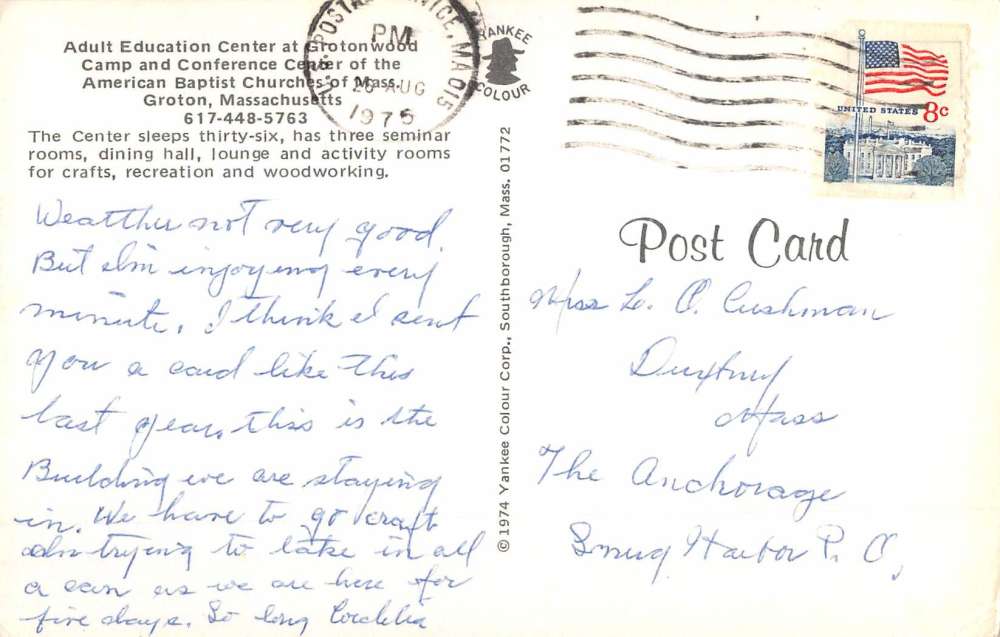 Adult Education Center at Grotonwood
Camp and Conference Center of the
American Baptist Churches of Mass.
Groton, Massachusetts
617-448-5763
The Center sleeps thirty-six, has three seminar
rooms, dining hall, lounge and activity rooms
for crafts, recreation and woodworking.
Weatther not very good.
But Im injoying every
minute. I think I sent
you a card like this
last year, this is the
Building we are staying
in. We have to go craft
Im trying to take in all
a can as we are here for
five days. So long Cordelia
© 1974 Yankee Colour Corp., Southborough, Mass. 01772
U.S. POSTAL SERVICE, MA 015
PM
26 AUG
1975
YANKEE
COLOUR
UNITED STATES 8c
Post Card
Miss L. O. Cushman
Duxbury
Mass
The Anchorage
Snug Harbor P. O.